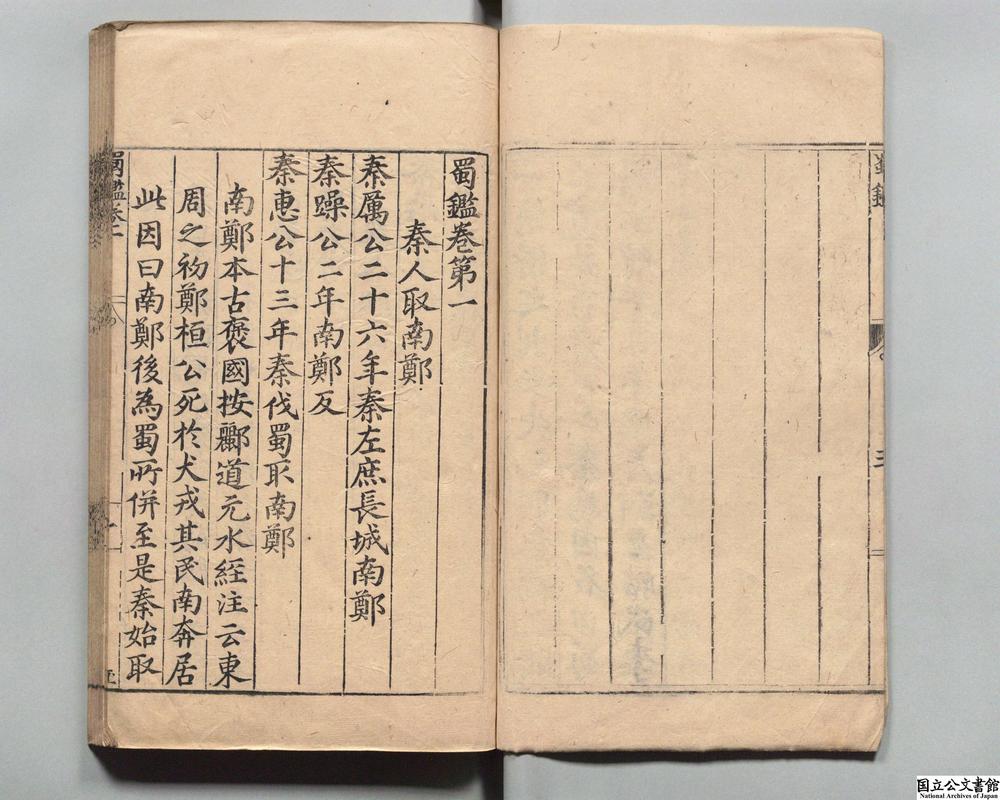 蜀鑑
三
蜀鑑卷第一
秦人取南鄭
秦厲公二十六年秦左庶長城南鄭
秦躁公二年南鄭反
秦惠公十三年秦伐蜀取南鄭
南鄭本古褒國按酈道元水經注云東
周之初鄭桓公死於犬戎其民南奔居
此因曰南鄭後為蜀所併至是秦始取
蜀鑑卷一
国立公文書館
National Archives of Japan